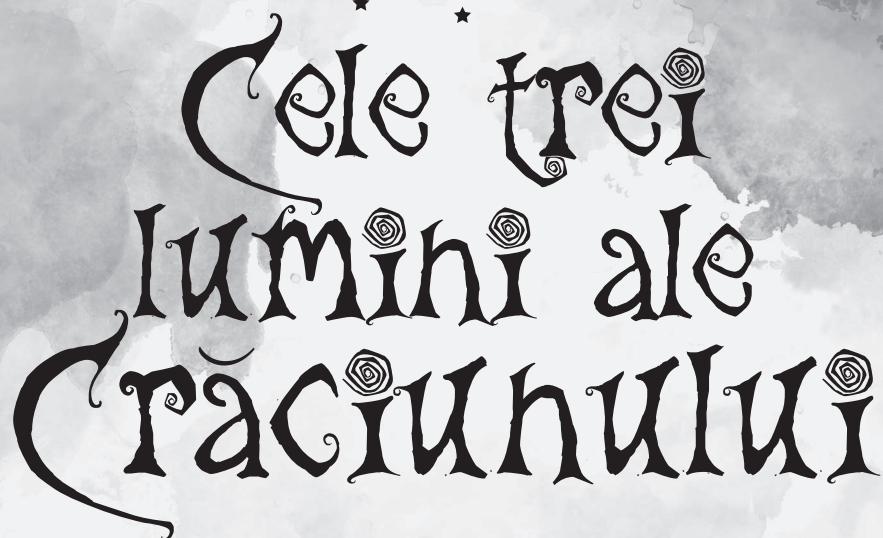 Cele trei
lumini ale
Crăciunului